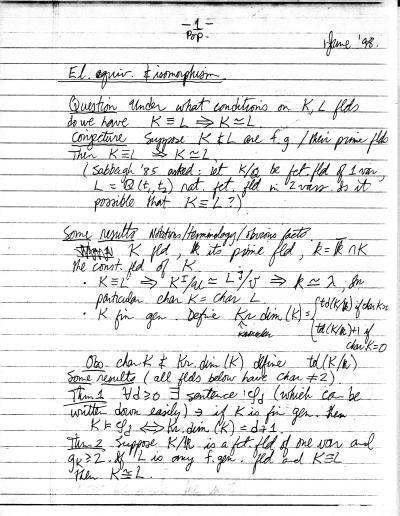 - 1 -
Pop.
1 June '98.
El. equiv. & isomorphism
Question Under what conditions on K, L flds
do we have K ≡ L ⇒ K ≃ L.
Conjecture Suppose K & L are f.g / their prime flds
Then K ≡ L ⇒ K ≃ L
(Sabbagh '85 asked: let K/Q be fct fld of 1 var,
L = Q(t₁,t₂) rat. fct. fld in 2 vars. Is it
possible that K ≡ L?)
Some results Notations/terminology/obvious facts
K fld, 𝕜 its prime fld, k = 𝕜 ∩ K
the const. fld of K.
• K ≡ L ⇒ K^I/u ≃ L^J/v ⇒ k ≃ λ, In
particular char K = char L.
• K fin gen. Define Kr.dim(K) = { td(K/𝕜) if char K ≠
td(K/𝕜)+1 if
char K = 0
Obs. char K & Kr.dim(K) define td(K/𝕜)
Some results (all flds below have char ≠ 2).
Thm 1 ∀d ≥ 0 ∃ sentence φ_d (which can be
written down easily) ∍ if K is fin gen. then
K ⊨ φ_d ⟺ Kr.dim(K) = d+1.
Thm 2 Suppose K/𝕜 is a fct. fld of one var and
g_K ≥ 2. If L is any f.gen. fld and K ≡ L
then K ≅ L.